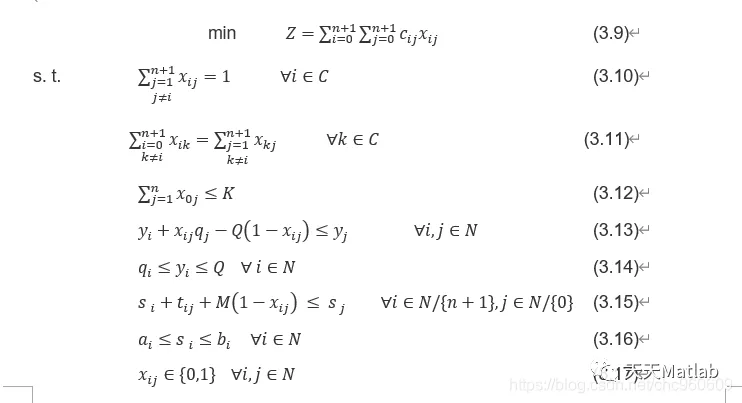 min Z = ∑_{i=0}^{n+1} ∑_{j=0}^{n+1} c_{ij}x_{ij} (3.9)↵
s. t. ∑_{j=1, j≠i}^{n+1} x_{ij} = 1 ∀i ∈ C (3.10)↵
∑_{i=0, k≠i}^{n+1} x_{ik} = ∑_{j=1, k≠i}^{n+1} x_{kj} ∀k ∈ C (3.11)↵
∑_{j=1}^{n} x_{0j} ≤ K (3.12)↵
y_i + x_{ij}q_j − Q(1 − x_{ij}) ≤ y_j ∀i, j ∈ N (3.13)↵
q_i ≤ y_i ≤ Q ∀ i ∈ N (3.14)↵
s_i + t_{ij} + M(1 − x_{ij}) ≤ s_j ∀i ∈ N/{n + 1}, j ∈ N/{0} (3.15)↵
a_i ≤ s_i ≤ b_i ∀i ∈ N (3.16)↵
x_{ij} ∈ {0,1} ∀i, j ∈ N
天天Matlab